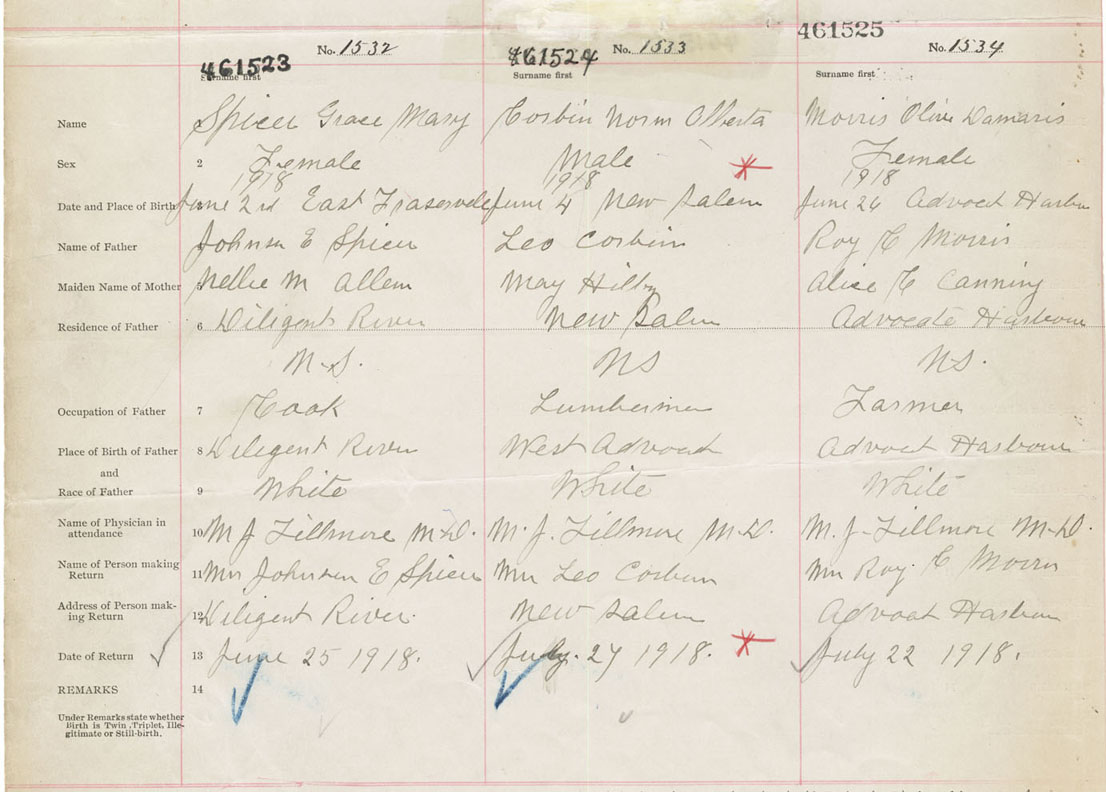 No. 1532 No. 1533 461525 No. 1534
461523 461524
Surname first Surname first Surname first
Name 1 Spicer Grace Mary Corbin Norm Alberta Morris Olive Damaris
Sex 2 Female Male Female
1918 1918 1918
Date and Place of Birth June 2nd East Fraserville June 4 New Salem June 26 Advocat Harbor
Name of Father Johnson E Spicer Leo Corbin Roy E Morris
Maiden Name of Mother 5 Nellie M Allen May Alice E Canning
Residence of Father 6 Diligent River New Salem Advocate Harbour
N.S. NS NS.
Occupation of Father 7 Cook Lumberman Farmer
Place of Birth of Father 8 Diligent River West Advocat Advocat Harbour
and
Race of Father 9 White White White
Name of Physician in
attendance 10 M J Fillmore M.D. M. J. Fillmore M.D. M. J. Fillmore M.D.
Name of Person making
Return 11 Mrs Johnson E Spicer Mrs Leo Corbin Mrs Roy E Morris
Address of Person mak-
ing Return 12 Diligent River. New Salem Advocat Harbour
Date of Return 13 June 25 1918. July. 27 1918. July 22 1918.
REMARKS 14
Under Remarks state whether
Birth is Twin, Triplet, Ille-
gitimate or Still-birth.